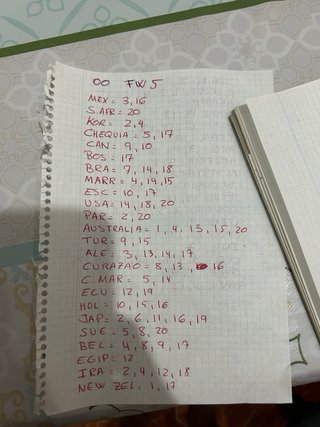 00 FW5
MEX = 3,16
S.AFR = 20
KOR = 2,4
CHEQUIA = 5, 17
CAN = 9, 10
BOS = 17
BRA = 7, 14, 18
MARR = 4, 14, 15
ESC = 10, 17
USA = 14, 18, 20
PAR = 2, 20
AUSTRALIA = 1, 4, 13, 15, 20
TUR = 9, 15
ALE = 3, 13, 14, 17
CURAZAO = 8, 13, 16
C.MAR = 5, 14
ECU = 12, 19
HOL = 10, 15, 16
JAP = 2, 6, 11, 16, 19
SUE = 5, 8, 20
BEL = 4, 8, 9, 17
EGIP = 12
IRA = 2, 4, 12, 18
NEW ZEL = 1, 17